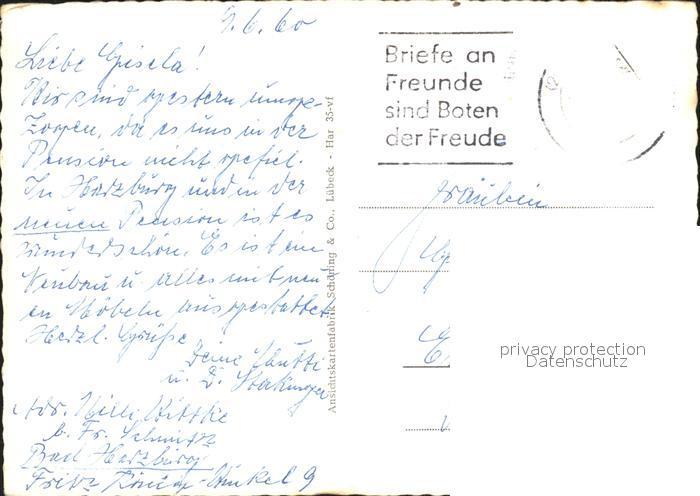 9.6.60
Liebe Gisela!
Wir sind gestern umge-
zogen, da es uns in der
Pension nicht gefiel.
In Harzburg und in der
neuen Pension ist es
wunderschön. Es ist ein
Neubau u. alles mit neu
en Möbeln ausgestattet
Herzl. Grüße
Deine Mutti
u. D.
Adr. Willi Wittke
b. Fr. Schmitz
Bad Harzburg
Fritz König-Winkel 9
Ansichtskartenfabrik Schöning & Co., Lübeck - Har 35-vf
Briefe an
Freunde
sind Boten
der Freude
Fräulein
privacy protection
Datenschutz